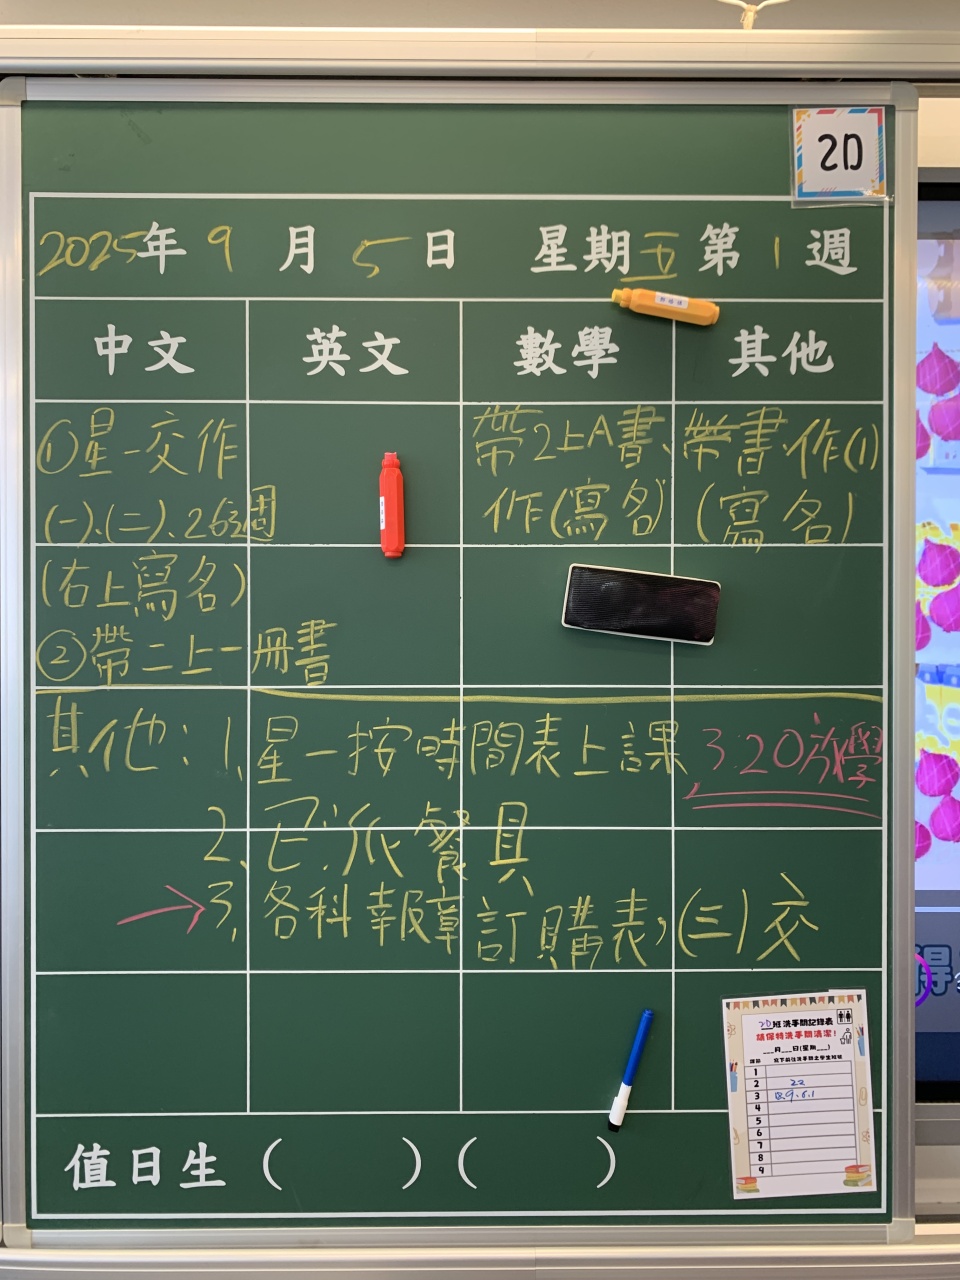 2D
2025年9月5日 星期五 第1週
中文 英文 數學 其他
①星一交作
(一)、(二)、26週
(右上寫名)
②帶二上一冊書
帶2上A書、
作(寫名)
帶書、作(1)
(寫名)
其他：1.星一按時間表上課
3:20放學
2.已派餐具
3.各科報章訂購表，(三)交
值日生( )( )
2D班洗手間記錄表
請保持洗手間清潔！
___月___日(星期___)
課節
1
2 22
3
4
5
6
7
8
9